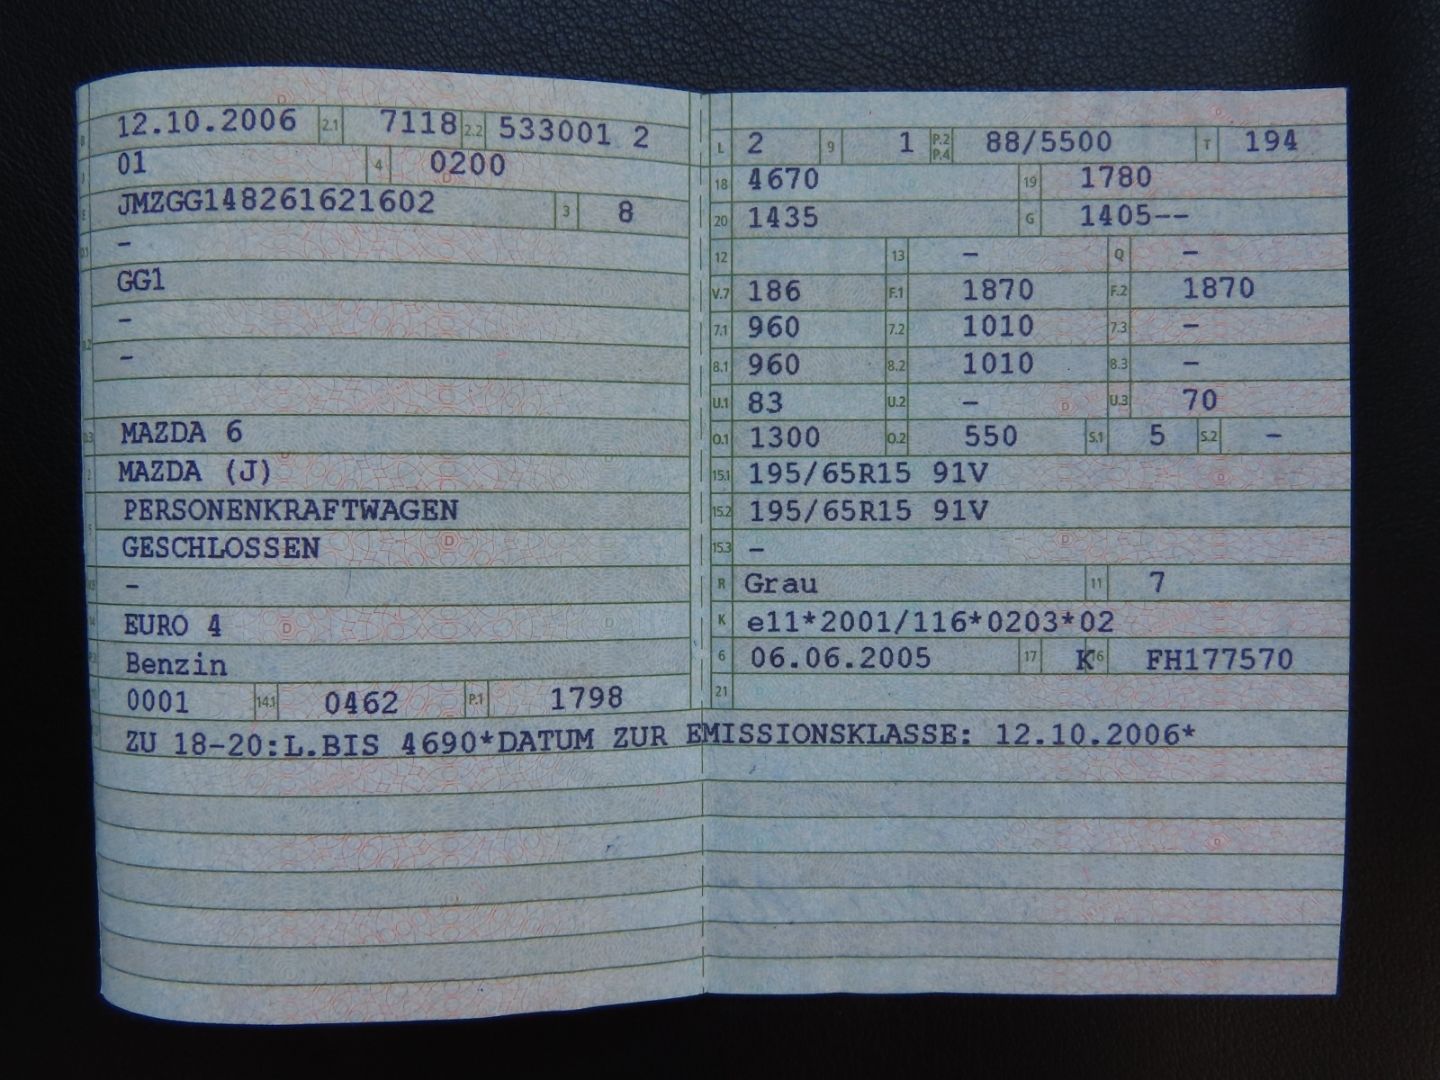 B 12.10.2006 2.1 7118 2.2 533001 2
J 01 4 0200
E JMZGG148261621602 3 8
D.1 -
GG1
-
D.2 -
D.3 MAZDA 6
2 MAZDA (J)
PERSONENKRAFTWAGEN
5 GESCHLOSSEN
-
14 EURO 4
P.3 Benzin
0001 14.1 0462 P.1 1798
L 2 9 1 P.2 P.4 88/5500 T 194
18 4670 19 1780
20 1435 G 1405--
12 13 - Q -
V.7 186 F.1 1870 F.2 1870
7.1 960 7.2 1010 7.3 -
8.1 960 8.2 1010 8.3 -
U.1 83 U.2 - U.3 70
O.1 1300 O.2 550 S.1 5 S.2 -
15.1 195/65R15 91V
15.2 195/65R15 91V
15.3 -
R Grau 11 7
K e11*2001/116*0203*02
6 06.06.2005 17 K 16 FH177570
21
ZU 18-20:L.BIS 4690*DATUM ZUR EMISSIONSKLASSE: 12.10.2006*